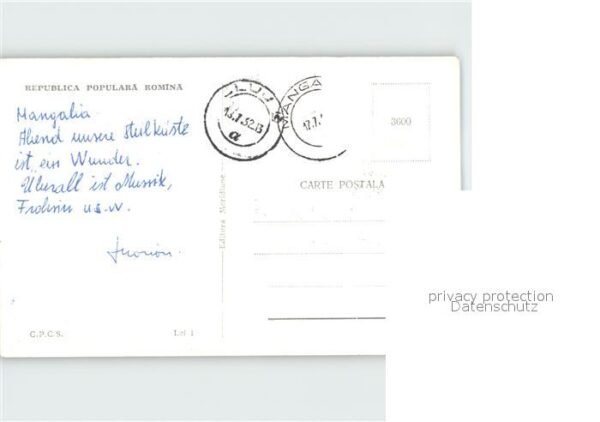 REPUBLICA POPULARĂ ROMÎNĂ
Mangalia
Abend unsere Steilküste
ist ein Wunder.
Überall ist Mussik,
Frohsinn u.s.w.
CLUJ
13.7.52.13
a
MANGA
17.7.
3600
CARTE POSTALA
Editura Meridiane
C.P.C.S.
Lei 1
privacy protection
Datenschutz